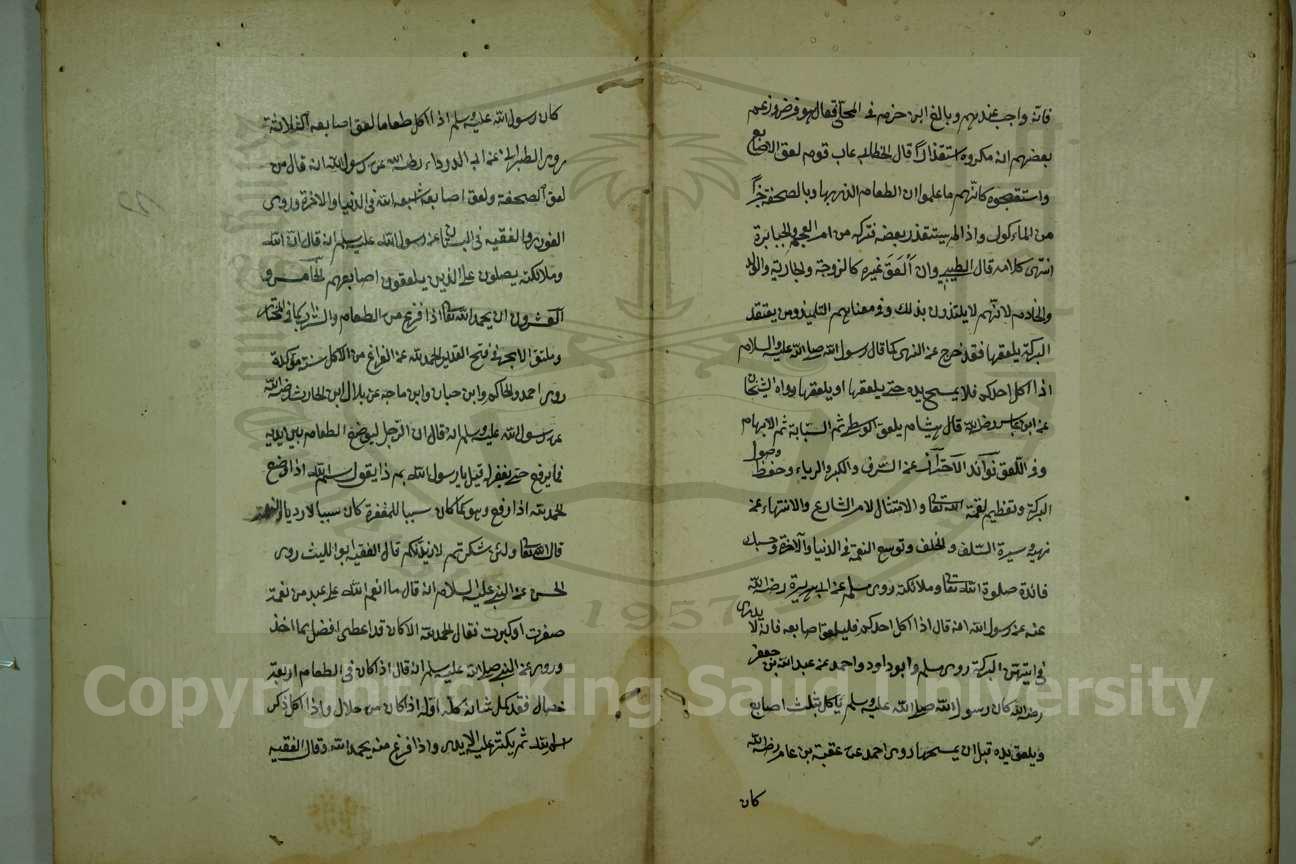 فانه واجب عندهم وبالغ ابن حزم في المحلي فقال هو فرض وزعم
بعضهم انه مكروه استقذارا قال الخطابي عاب قوم لعق الاصابع
واستقبحوه كانهم ما علموا ان الطعام الذي بها وبالصحفة جزأ
من الماكول واذا لم يستقذر بعضه فتركه من امر العجم والجبابرة
انتهى كلامه قال الطيبي وان ألعق غيره كالزوجة والجارية والولد
والخادم لانهم لا يلتذذن بذلك وفي معناهم التلميذ ومن يعتقد
البركة يلعقها فقد خرج عن النهي كما قال رسول الله صلى الله عليه والسلام
اذا اكل احدكم فلا يمسح يده حتى يلعقها او يلعقها رواه الشيخان
عن ابن عباس رضي الله قال هشام يلعق الوسطى ثم السبابة ثم الابهام
وفي اللعق فوائد الاحتراز عن السرف والكبر والرياء وحفظ وصول
البركة وتعظيم لنعمة الله تعالى والامتثال لامر الشارع والانتهاء عن
نهيه وسيرة السلف والخلف وتوسيع النعمة في الدنيا والآخرة وحسبك
فائدة صلوة الله تعالى وملائكته روى مسلم عن ابي هريرة رضي الله
عنه عن رسول الله انه قال اذا اكل احدكم فليلعق اصابعه فانه لا يدري
في ايتهن البركة روى مسلم وابو داود واحمد عن عبد الله بن جعفر
رضي الله كان رسول الله صلى الله عليه وسلم ياكل بثلث اصابع
ويلعق يده قبل ان يمسحها روى احمد عن عقبة بن عامر رضي الله
كان
كان رسول الله عليه وسلم اذا اكل طعاما لعق اصابعه الثلاثة
روى الطبراني عن ابي الدرداء رضي الله عن رسول الله انه قال من
لعق الصحفة ولعق اصابعه اشبعه الله في الدنيا والآخرة وروى
والفقيه في البستان عن رسول الله عليه وسلم انه قال ان الله
وملائكته يصلون على الذين يلعقون اصابعهم الخامس و
العشرون ان يحمد الله تعالى اذا فرغ من الطعام والشراب كما في المختار
وملتقى الابحر في فتح القدير الحمد لله عن الفراغ من الاكل سنة مؤكدة
روى احمد والحاكم وابن حبان وابن ماجه عن بلال ابن الحارث رضي الله
عن رسول الله عليه وسلم انه قال ان الرجل ليوضع الطعام بين يديه
فما يرفع حتى يغفر له قيل يا رسول الله بم ذا يقول بسم الله اذا وضع
الحمد لله اذا رفع وهو كما كان سببا للمغفرة كان سببا لازدياد النعمة
قال الله تعالى ولئن شكرتم لازيدنكم قال الفقيه ابو الليث روى
الحسن عن النبي عليه السلام انه قال ما انعم الله على عبد من نعمة
صغرت او كبرت فقال الحمد لله الا كان قد اعطى افضل مما اخذ
وروى عن النبي صلى الله عليه وسلم انه قال اذا كان في الطعام اربعة
خصال فقد كمل شانه كله اوله اذا كان من حلال واذا اكل ذكر
اسم الله ثم يكثر عليه الايدي واذا فرغ منه يحمد الله وقال الفقيه
Copyright © King Saud University
1957